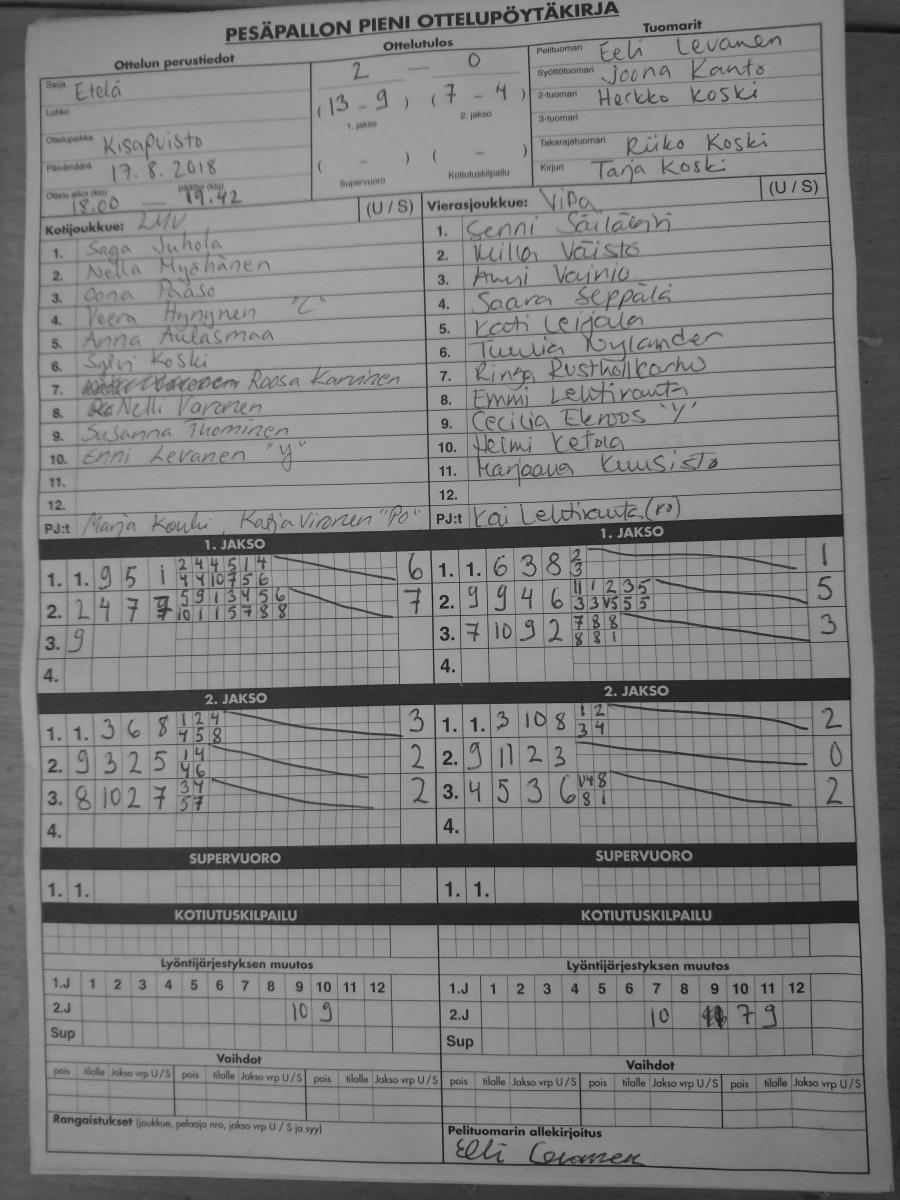 PESÄPALLON PIENI OTTELUPÖYTÄKIRJA
Ottelun perustiedot
Sarja Etelä
Lohko
Ottelupaikka Kisapuisto
Päivämäärä 17.8.2018
Ottelu alkoi (klo) Päättyi (klo)
18.00 — 19.42
Ottelutulos
2 — 0
(13 - 9) (7 - 4)
1. jakso 2. jakso
( - ) ( - )
Supervuoro Kotiutuskilpailu
Tuomarit
Pelituomari Eeli Levanen
Syöttötuomari Joona Kanto
2-tuomari Herkko Koski
3-tuomari
Takarajatuomari Riiko Koski
Kirjuri Tarja Koski
Kotijoukkue: LMV (U / S)
1. Saga Juhola
2. Nella Myöhänen
3. Oona Pääso
4. Veera Hynynen "L"
5. Anna Aulasmaa
6. Sylvi Koski
7. Roosa Karvinen
8. Nelli Varonen
9. Susanna Tuominen
10. Enni Levanen "Y"
11.
12.
PJ:t Marja Kouhi, Katja Vironen "PO"
Vierasjoukkue: ViPa (U / S)
1. Senni
2. Milla Väistö
3. Anni Vainio
4. Saara Seppälä
5. Kati Leijala
6. Tuulia Nylander
7. Rusthollkarhu
8. Emmi Lehtiranta
9. Cecilia Ekroos "Y"
10. Helmi Ketola
11. Marjaana Kuusisto
12.
PJ:t Kai Lehtiranta (PO)
1. JAKSO
1. 1. 9 5 1 2 4 4 5 1 4 6
4 4 10 7 5 6
2. 2 4 7 9 5 9 1 3 4 5 6 7
10 1 1 5 7 8 8
3. 9
4.
1. JAKSO
1. 1. 6 3 8 2 1
3
2. 9 9 4 6 11 1 2 3 5 5
3 3 V5 5 5
3. 7 10 9 2 7 8 8 3
8 8 1
4.
2. JAKSO
1. 1. 3 6 8 1 2 4 3
4 5 8
2. 9 3 2 5 1 4 2
4 6
3. 8 10 2 7 3 4 2
5 7
4.
2. JAKSO
1. 1. 3 10 8 1 2 2
3 4
2. 9 11 2 3 0
3. 4 5 3 6 V4 8 2
8 1
4.
SUPERVUORO
1. 1.
SUPERVUORO
1. 1.
KOTIUTUSKILPAILU
KOTIUTUSKILPAILU
Lyöntijärjestyksen muutos
1.J 1 2 3 4 5 6 7 8 9 10 11 12
2.J 10 9
Sup
Lyöntijärjestyksen muutos
1.J 1 2 3 4 5 6 7 8 9 10 11 12
2.J 10 7 9
Sup
Vaihdot
pois tilalle Jakso vrp U / S pois tilalle Jakso vrp U / S pois tilalle Jakso vrp U / S
Vaihdot
pois tilalle Jakso vrp U / S pois tilalle Jakso vrp U / S pois tilalle Jakso vrp U / S
Rangaistukset (joukkue, pelaaja nro, jakso vrp U / S ja syy)
Pelituomarin allekirjoitus
Eeli Levanen